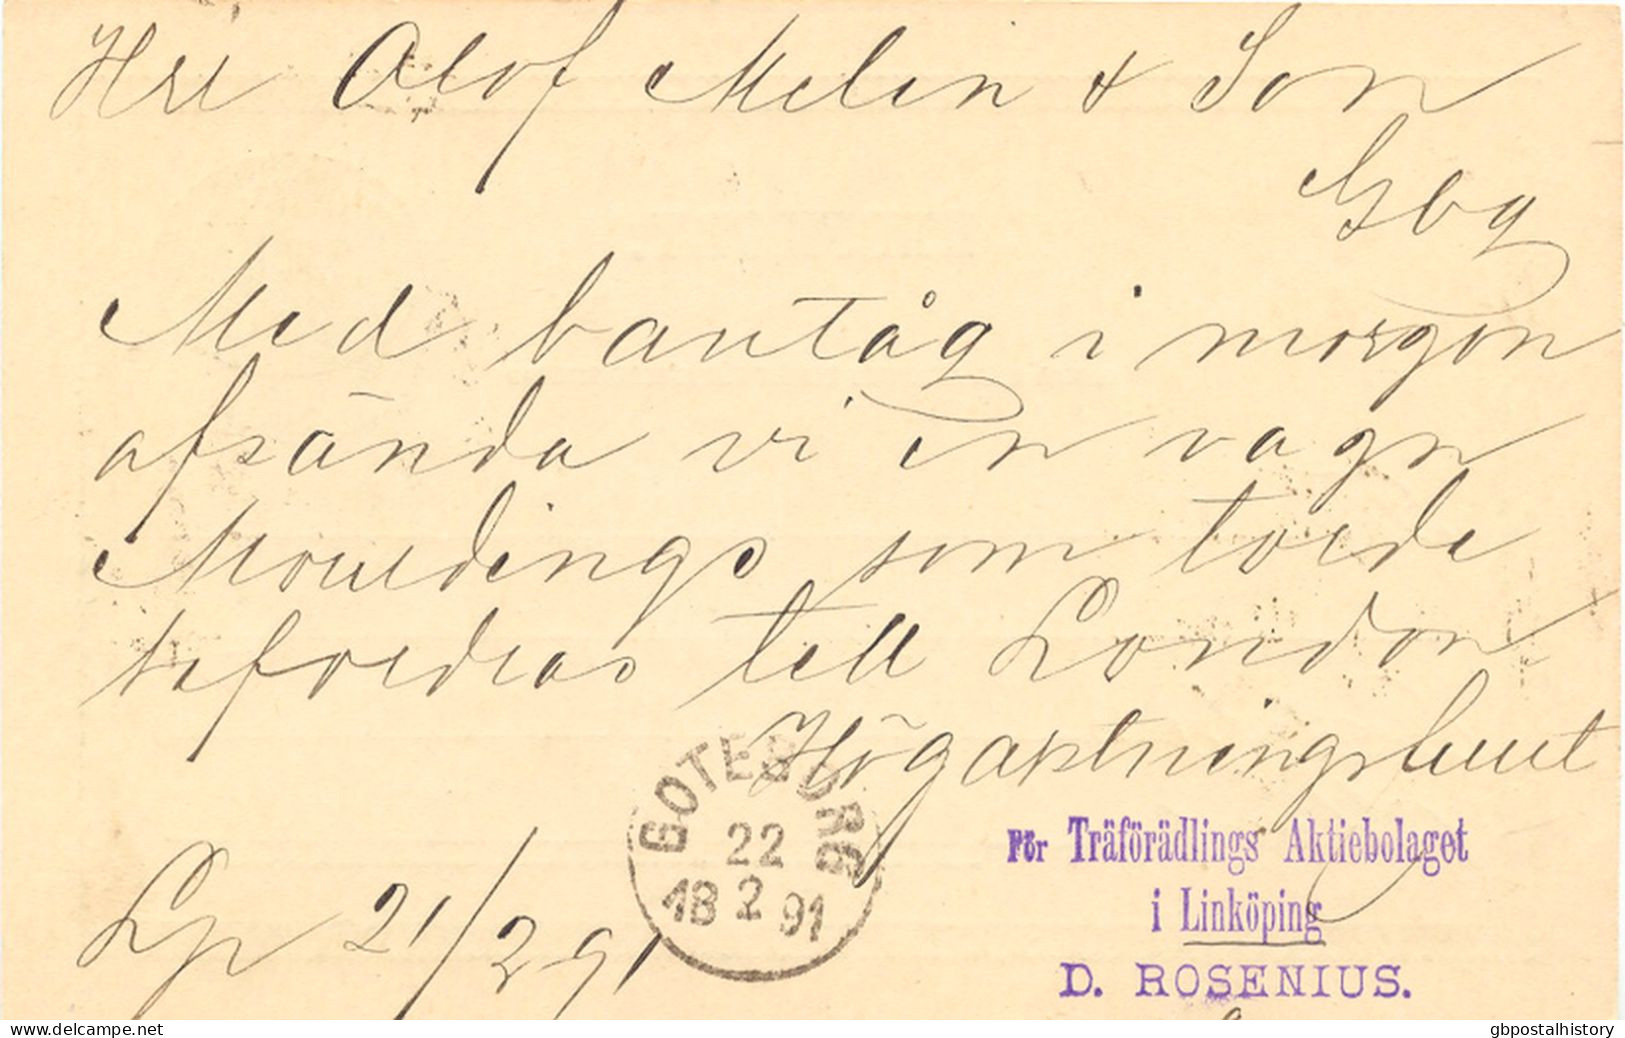 Hrr Olof Melin & Son
Gbg
Med bantåg i morgon
afsända vi en vagn
Mouldings som torde
befordras till London
Högaktningsfullt
GOTEBORG
22
2
18 91
För Träförädlings Aktiebolaget
i Linköping
D. ROSENIUS.
Lp 21/2 91
www.delcampe.net
gbpostalhistory